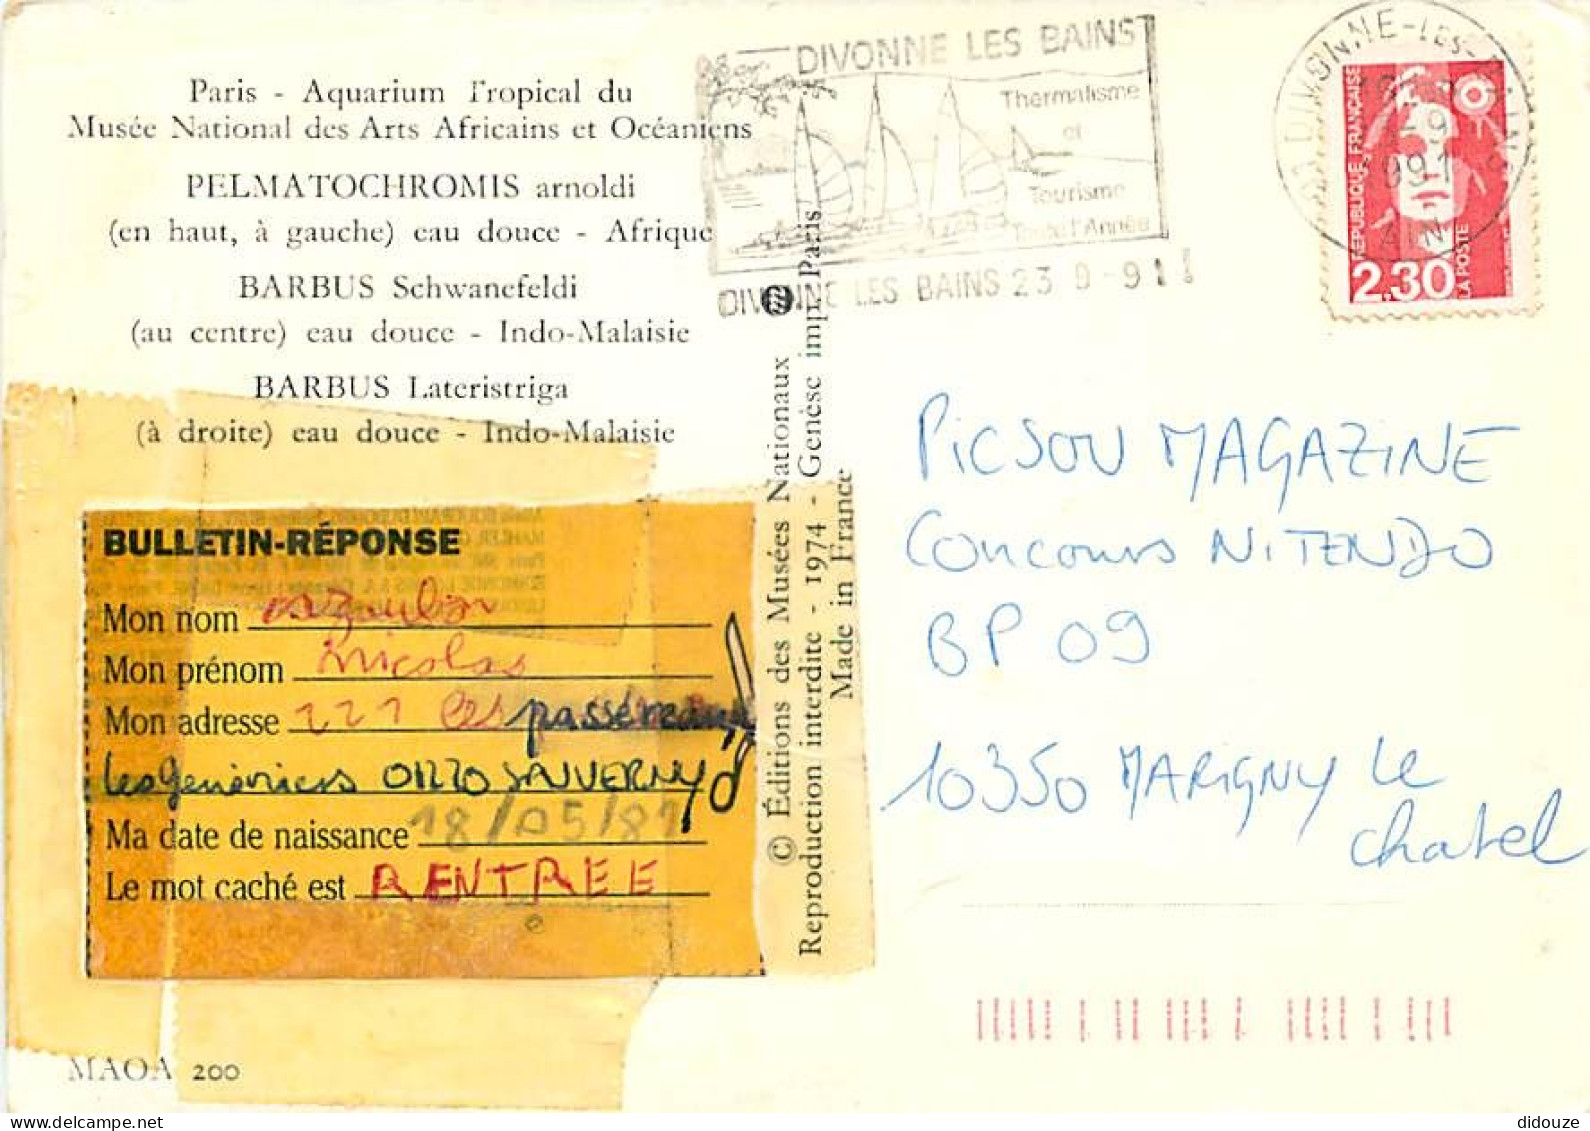 Paris - Aquarium Tropical du
Musée National des Arts Africains et Océaniens
PELMATOCHROMIS arnoldi
(en haut, à gauche) eau douce - Afrique
BARBUS Schwanefeldi
(au centre) eau douce - Indo-Malaisie
BARBUS Lateristriga
(à droite) eau douce - Indo-Malaisie
BULLETIN-RÉPONSE
Mon nom
Mon prénom Nicolas
Mon adresse 221 les passereaux
les genévriers 01220 SAUVERNY
Ma date de naissance 18/05/81
Le mot caché est RENTREE
MAOA 200
© Éditions des Musées Nationaux
Reproduction interdite - 1974 - Genèse imp. Paris
Made in France
DIVONNE LES BAINS
Thermalisme
et
Tourisme
Toute l'Année
DIVONNE LES BAINS 23 9 - 91
DIVONNE-LES-BAINS
AIN
RÉPUBLIQUE FRANÇAISE
2,30
LA POSTE
PICSOU MAGAZINE
Concours NiTENDO
BP 09
10350 MARIGNY Le
chatel
didouze